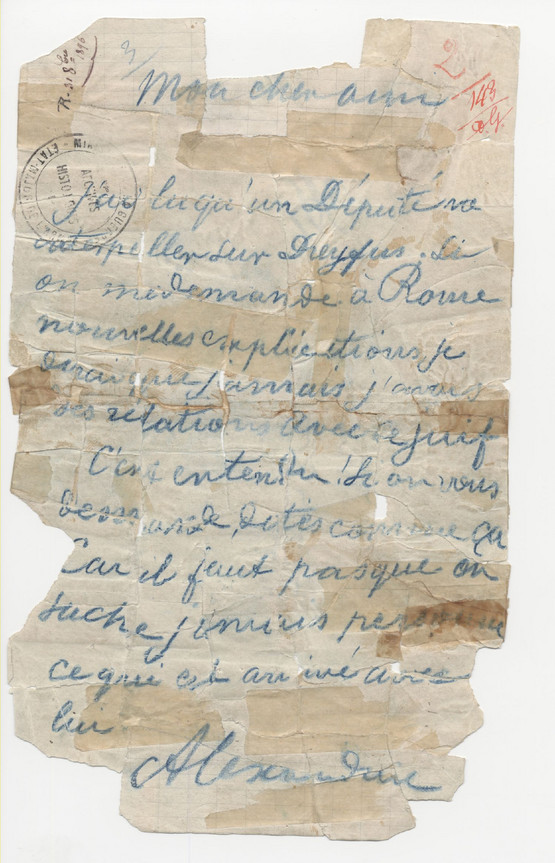 2
3/
143
Mon cher ami
J'ai lu qu'un Député va
interpeller sur Dreyfus. Si
on me demande à Rome
nouvelles explications je
dirai que jamais j'avais
des relations avec ce juif
C'est entendu! Si on vous
demande, dites comme ça
Car il faut pas que on
sache jamais personne
ce qui est arrivé avec
lui
Alexandrine